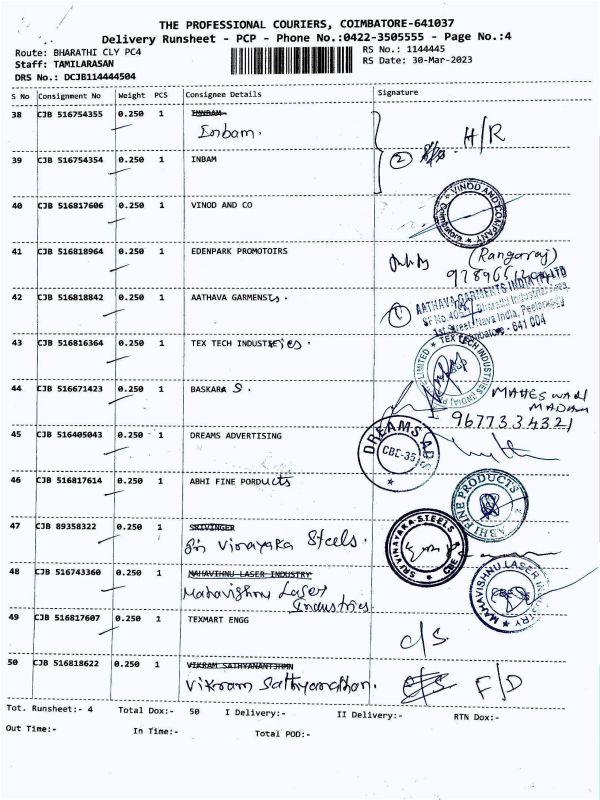 THE PROFESSIONAL COURIERS, COIMBATORE-641037
Delivery Runsheet - PCP - Phone No.:0422-3505555 - Page No.:4
Route: BHARATHI CLY PC4 RS No.: 1144445
Staff: TAMILARASAN RS Date: 30-Mar-2023
DRS No.: DCJB114444504
S No Consignment No Weight PCS Consignee Details Signature
38 CJB 516754355 0.250 1 INNBAM
Inbam. H/R
39 CJB 516754354 0.250 1 INBAM 2
40 CJB 516817606 0.250 1 VINOD AND CO VINOD AND COMPANY
41 CJB 516818964 0.250 1 EDENPARK PROMOTOIRS (Rangaraj)
42 CJB 516818842 0.250 1 AATHAVA GARMENSTS. 1 AATHAVA GARMENTS INDIA (P) LTD
SF No.405 Bharathi Industrial
1st Street, Nava India, Peelamedu
Coimbatore - 641 004
43 CJB 516816364 0.250 1 TEX TECH INDUSTRies. TEX TECH INDUSTRIES (INDIA) PRIVATE LIMITED
44 CJB 516671423 0.250 1 BASKARA S. MAHESWARI
MADAM
9677334321
45 CJB 516405043 0.250 1 DREAMS ADVERTISING DREAMS ADS
CBE-35
46 CJB 516817614 0.250 1 ABHI FINE PORDUcts ABHI FINE PRODUCTS
47 CJB 89358322 0.250 1 SRIVINGER
Sri Vinayaka Steels. SRI VINAYAKA STEELS
48 CJB 516743360 0.250 1 MAHAVTHNU LASER INDUSTRY
Mahavishnu Laser
Industries MAHAVISHNU LASER INDUSTRY
49 CJB 516817607 0.250 1 TEXMART ENGG C/S.
50 CJB 516818622 0.250 1 VIKRAM SATHYANANTJHMN
Vikram Sathyanathan. F/D
Tot. Runsheet:- 4 Total Dox:- 50 I Delivery:- II Delivery:- RTN Dox:-
Out Time:- In Time:- Total POD:-